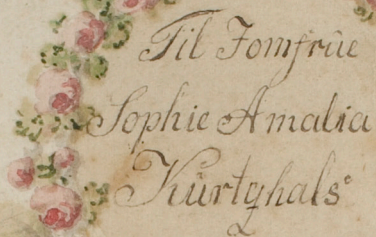 Til Jomfrùe
Sophie Amalia
Kùrtzhals